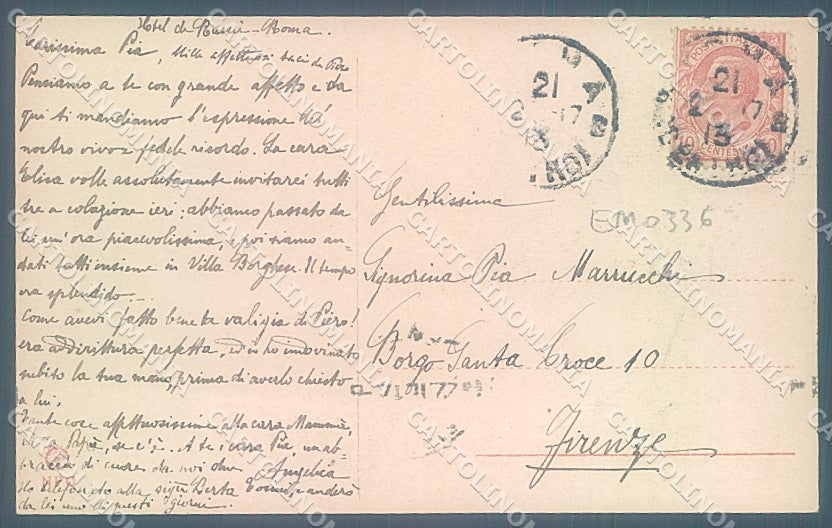 Hotel de Russie - Roma.
Carissima Pia, Mille affettuosi baci da Piero
Pensiamo a te con grande affetto e da
qui ti mandiamo l'espressione del
nostro vivo e fedele ricordo. La cara
Elisa volle assolutamente invitarci tutti
tre a colazione ieri; abbiamo passato da
lei un'ora piacevolissima, e poi siamo an-
dati tutti insieme in Villa Borghese. Il tempo
era splendido...
Come avevi fatto bene la valigia di Piero!
era addirittura perfetta, ed io ho indovinato
subito la tua mano, prima di averlo chiesto
a lui.
Tante cose affettuosissime alla cara Mamma,
Papà, se c'è. A te, cara Pia, un ab-
braccio di cuore da noi due Angelica
Ho telefonato alla sigra Berta andrò
da lei uno di questi giorni.
21
21
13
10 CENTESIMI 10
Gentilissima
EM0336
Signorina Pia Marrucchi
Borgo Santa Croce 10
Firenze
NPG
CARTOLINOMANIA